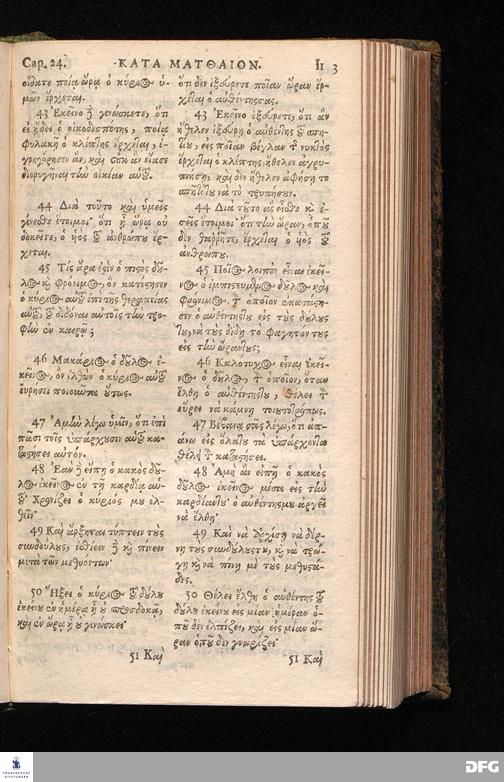 Cap. 24. ΚΑΤΑ ΜΑΤΘΑΙΟΝ. 113
οἴδατε ποίᾳ ὥρᾳ ὁ κύριος ὑ-
μῶν ἔρχεται.
43 Ἐκεῖνο δὲ γινώσκετε, ὅτι
εἰ ᾔδει ὁ οἰκοδεσπότης, ποίᾳ
φυλακῇ ὁ κλέπτης ἔρχεται, ἐ-
γρηγόρησεν ἂν, καὶ οὐκ ἂν εἴασε
διορυγῆναι τὴν οἰκίαν αὐτοῦ.
44 Διὰ τοῦτο καὶ ὑμεῖς
γίνεσθε ἕτοιμοι· ὅτι ᾗ ὥρᾳ οὐ
δοκεῖτε, ὁ υἱὸς τοῦ ἀνθρώπου ἔρ-
χεται.
45 Τίς ἄρα ἐστὶν ὁ πιστὸς δοῦ-
λος καὶ φρόνιμος, ὃν κατέστησεν
ὁ κύριος αὐτοῦ ἐπὶ τῆς θεραπείας
αὐτοῦ, τοῦ διδόναι αὐτοῖς τὴν τρο-
φὴν ἐν καιρῷ;
46 Μακάριος ὁ δοῦλος ἐ-
κεῖνος, ὃν ἐλθὼν ὁ κύριος αὐτοῦ
εὑρήσει ποιοῦντα οὕτως.
47 Ἀμὴν λέγω ὑμῖν, ὅτι ἐπὶ
πᾶσι τοῖς ὑπάρχουσιν αὐτοῦ κα-
ταστήσει αὐτόν.
48 Ἐὰν δὲ εἴπῃ ὁ κακὸς δοῦ-
λος ἐκεῖνος ἐν τῇ καρδίᾳ αὐ-
τοῦ· Χρονίζει ὁ κύριός μου ἐλ-
θεῖν·
49 Καὶ ἄρξηται τύπτειν τοὺς
συνδούλους, ἐσθίειν δὲ καὶ πίνειν
μετὰ τῶν μεθυόντων·
50 Ἥξει ὁ κύριος τοῦ δούλου
ἐκείνου ἐν ἡμέρᾳ ᾗ οὐ προσδοκᾷ,
καὶ ἐν ὥρᾳ ᾗ οὐ γινώσκει·
51 Καὶ
ὅτι δὲν ἠξεύρετε ποῖαν ὥραν ἔρ-
χεται ὁ αὐθέντης σας.
43 Ἐκεῖνο ἐξεύρετε, ὅτι ἂν
ἤθελεν ἐξεύρῃ ὁ αὐθέντης τοῦ σπη-
τίου, εἰς ποῖαν βέγλαν τῆς νυκτὸς
ἔρχεται ὁ κλέπτης, ἤθελεν ἀγρυ-
πνήσῃ, καὶ δὲν ἤθελεν ἀφήσῃ τὸ
σπῆτίου νὰ τὸ τρυπήσουν.
44 Διὰ τοῦτο ἂς εἶσθε καὶ ἐ-
σεῖς ἕτοιμοι· ὅτι τὴν ὥραν, ὁποῦ
δὲν θαρρῆτε, ἔρχεται ὁ υἱὸς τοῦ
ἀνθρώπου.
45 Ποῖος λοιπὸν εἶναι ἐκεῖ-
νος ὁ ἐμπιστευμένος δοῦλος καὶ
φρόνιμος, τὸν ὁποῖον ἐκατάστη-
σεν ὁ αὐθέντης του εἰς τοὺς δούλους
του, νὰ τοὺς δίδῃ τὸ φαγητόν τους
εἰς τὴν ὥραν τους;
46 Καλότυχος εἶναι ἐκεῖ-
νος ὁ δοῦλος, τὸν ὁποῖον, ὅταν
ἔλθῃ ὁ αὐθέντης του, θέλει τὸν
εὕρει νὰ κάμνῃ τουτοτρόπως.
47 Βέβαια σᾶς λέγω, ὅτι ἀπ-
άνω εἰς ὅλα του τὰ ὑπάρχοντα
θέλει τὸν καταστήσει.
48 Ἀμὴ ἂν εἰπῇ ὁ κακὸς
δοῦλος ἐκεῖνος μέσα εἰς τὴν
καρδίαν του· ὁ αὐθέντης μου ἀργεῖ
νὰ ἔλθῃ·
49 Καὶ νὰ ἀρχίσῃ νὰ δέρ-
νῃ τοὺς συνδούλους του, καὶ νὰ τρώ-
γῃ καὶ νὰ πίνῃ μὲ τοὺς μεθυστά-
δες.
50 Θέλει ἔλθῃ ὁ αὐθέντης τοῦ
δούλου ἐκείνου εἰς μίαν ἡμέραν ὁ-
ποῦ δὲν ἐλπίζει, καὶ εἰς μίαν ὥ-
ραν ὁποῦ δὲν γνωρίζει·
51 Καὶ
FRANCKESCHE STIFTUNGEN
DFG